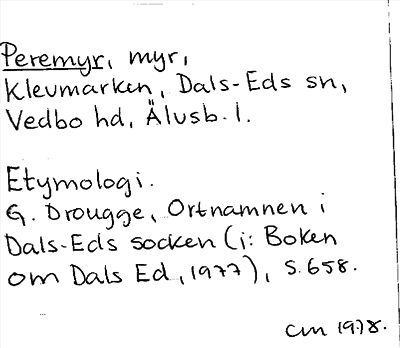 Peremyr, myr,
Klevmarken, Dals-Eds sn,
Vedbo hd, Älvsb. l.
Etymologi.
G. Drougge, Ortnamnen i
Dals-Eds socken (i: Boken
om Dals Ed, 1977), s. 658.
cm 1978.